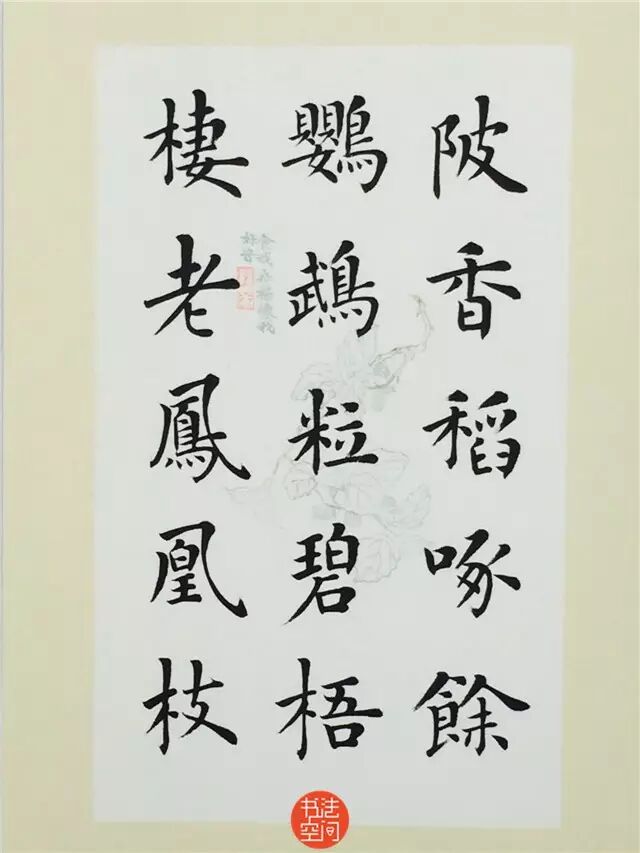 陂香稻啄餘
鸚鵡粒碧梧
棲老鳳凰枝
书法空间